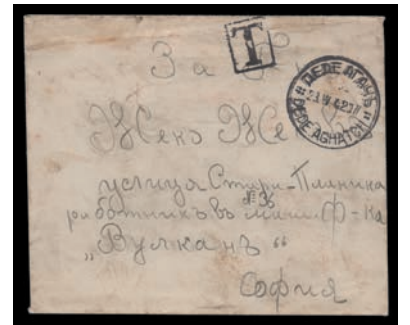 T
За
ДЕДЕ АГАЧЪ
DEDE AGHATCH
Жеко Же
улица Стара-Планина
№36
работникъ въ Ф-ка
„Вулканъ“
София